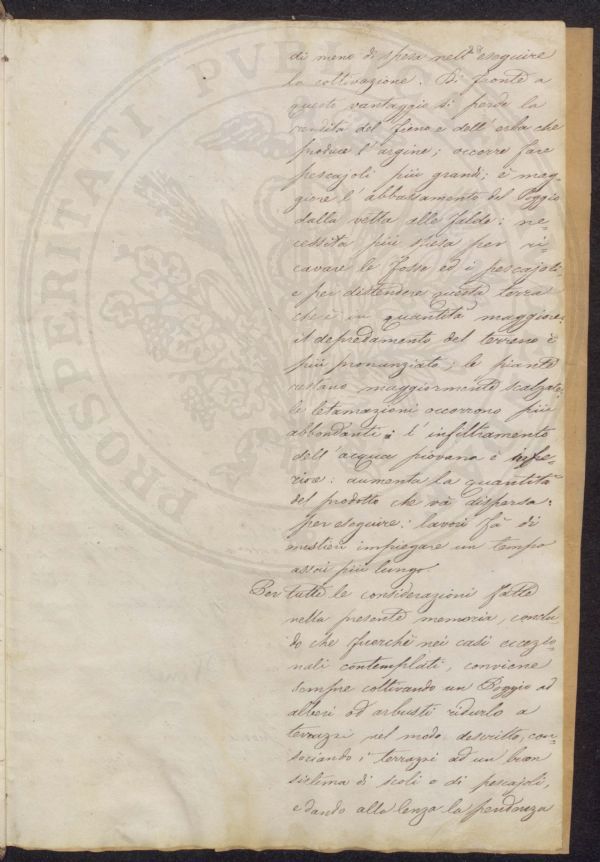 di meno di spesa nell'eseguire
la coltivazione. Di fronte a
questi vantaggi si perde la
rendita del fieno e dell'erba che
produce l'argine; occorre fare
pescajoli più grandi; è mag=
giore l'abbassamento del Poggio
dalla vetta alle falde: ne=
cessita più spesa per ri=
cavare le fosse ed i pescajoli
e per distendere questa terra
che è in quantità maggiore:
il depredamento del terreno è
più pronunziato; le piante
restano maggiormente scalzate
le letamazioni occorrono più
abbondanti: l'infiltramento
dell'acqua piovana è infe=
riore: aumenta la quantità
del prodotto che và dispersa:
per eseguire i lavori fà di
mestieri impiegare un tempo
assai più lungo.
Per tutte le considerazioni fatte
nella presente memoria, conclu
do che fuorchè nei casi eccezio=
nali contemplati, conviene
sempre coltivando un Poggio ad
alberi od arbusti ridurlo a
terrazzi nel modo descritto, con=
sociando i terrazzi ad un buon
sistema di scoli e di pescajoli,
e dando alla lenza la pendenza
PROSPERITATI PVBL